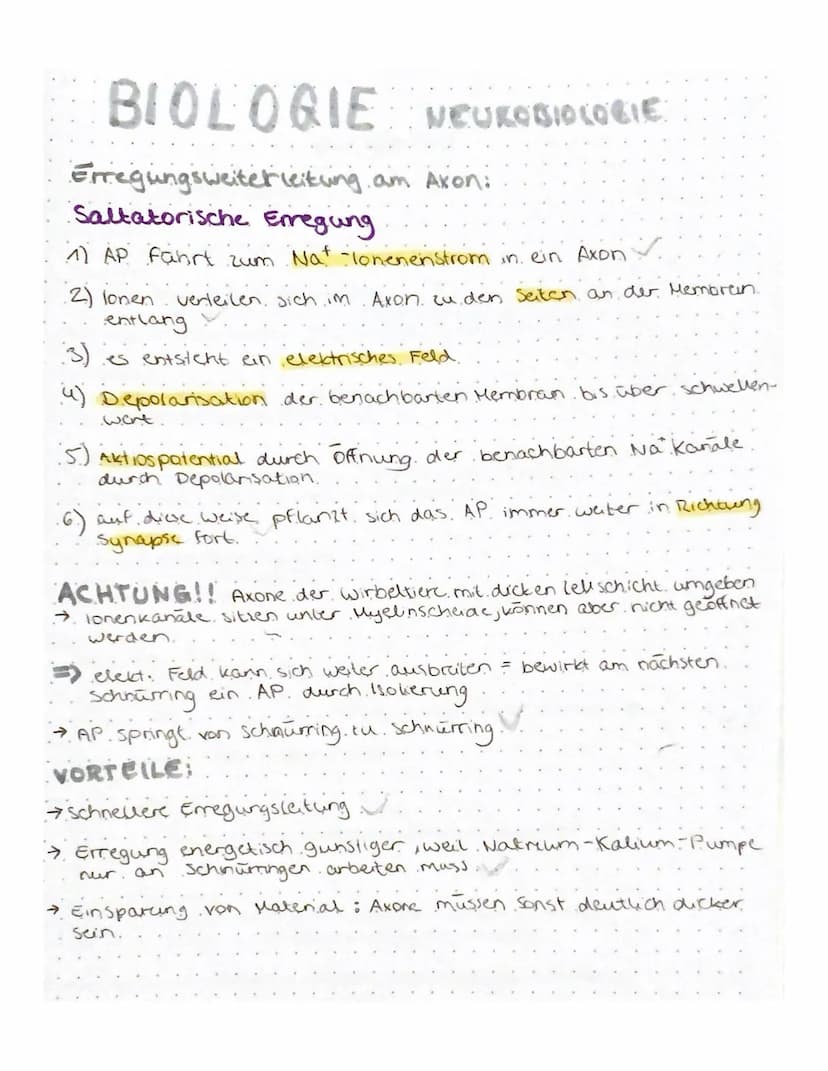 BIOLOGIE NEUROBIOLOGIE
Erregungsweiterleitung am Axon:
Saltatorische Erregung
1) AP fährt zum Na⁺-Ionenenstrom in ein Axon ✓
2) Ionen verteilen sich im Axon zu den Seiten an der Membran
entlang ✓
3) es entsteht ein elektrisches Feld.
4) Depolarisation der benachbarten Membran bis über schwellen-
wert.
5) Aktiospotential durch Öffnung der benachbarten Na⁺ Kanäle
durch Depolarisation.
6) auf diese Weise pflanzt sich das AP immer weiter in Richtung
Synapse fort.
ACHTUNG!! Axone der Wirbeltiere mit dicken Zellschicht umgeben
→ Ionenkanäle sitzen unter Myelinscheide, können aber nicht geöffnet
werden.
⇒ elekt. Feld kann sich weiter ausbreiten = bewirkt am nächsten
Schnürring ein AP durch Isolierung
→ AP springt von Schnürring zu Schnürring ✓
VORTEILE:
→ Schnellere Erregungsleitung ✓
→ Erregung energetisch günstiger, weil Natrium-Kalium-Pumpe
nur an Schnürringen arbeiten muss ✓
→ Einsparung von Material: Axone müssen sonst deutlich dicker
sein.